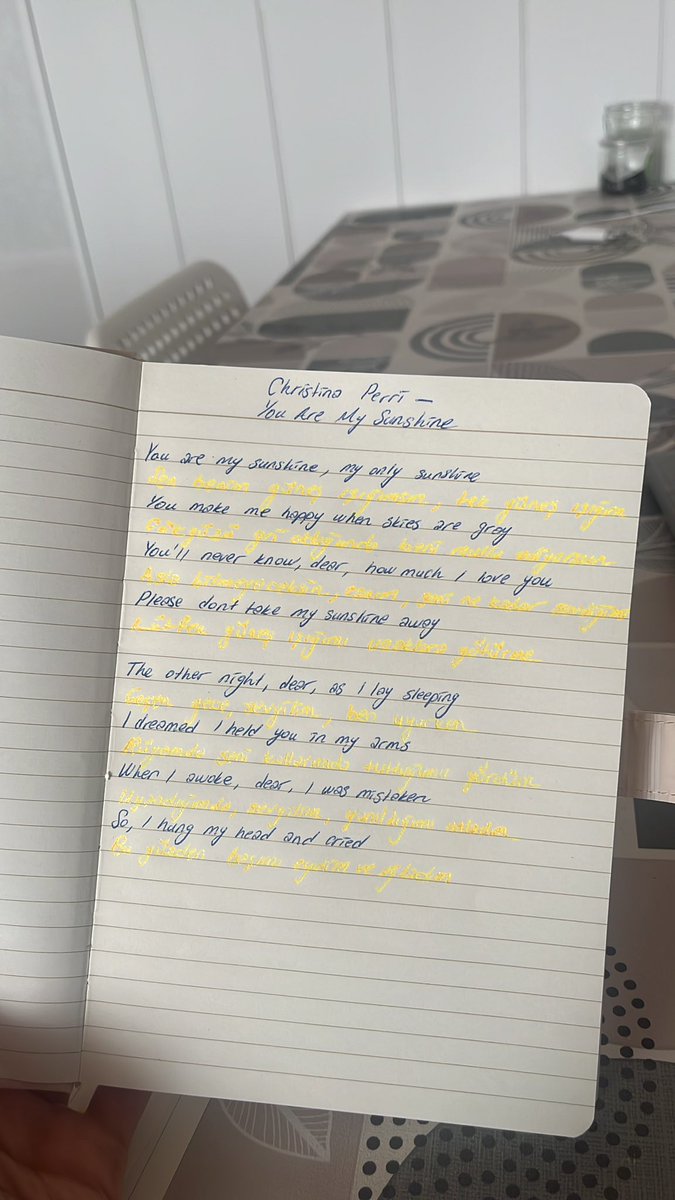 Christina Perri –
You Are My Sunshine
You are my sunshine, my only sunshine
Sen benim güneş ışığımsın, tek güneş ışığım
You make me happy when skies are gray
Gökyüzü gri olduğunda beni mutlu ediyorsun
You'll never know, dear, how much I love you
Asla bilmeyeceksin, seni ne kadar sevdiğimi
Please don't take my sunshine away
Lütfen güneş ışığımı uzaklara götürme
The other night, dear, as I lay sleeping
Geçen gece, sevgilim, ben uyurken
I dreamed I held you in my arms
Rüyamda seni kollarımda tuttuğumu gördüm
When I awoke, dear, I was mistaken
Uyandığımda, sevgilim, yanıldığımı anladım
So, I hung my head and cried
Bu yüzden başımı eğdim ve ağladım